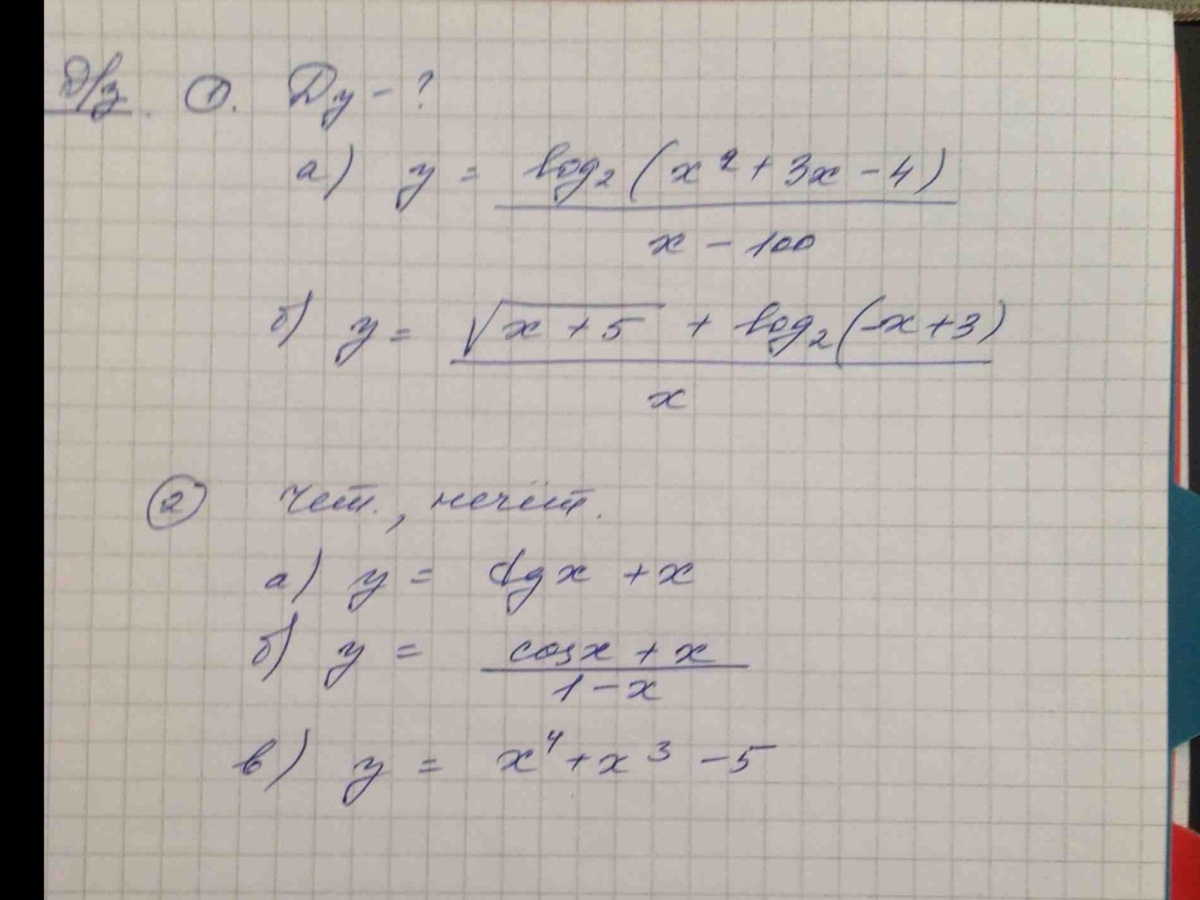 Д/з. ①. Dy - ?
а) y = log₂(x² + 3x - 4)
x - 100
б) y = √x + 5 + log₂(-x + 3)
x
② Чет., нечёт.
а) y = ctgx + x
б) y = cosx + x
1 - x
в) y = x⁴ + x³ - 5